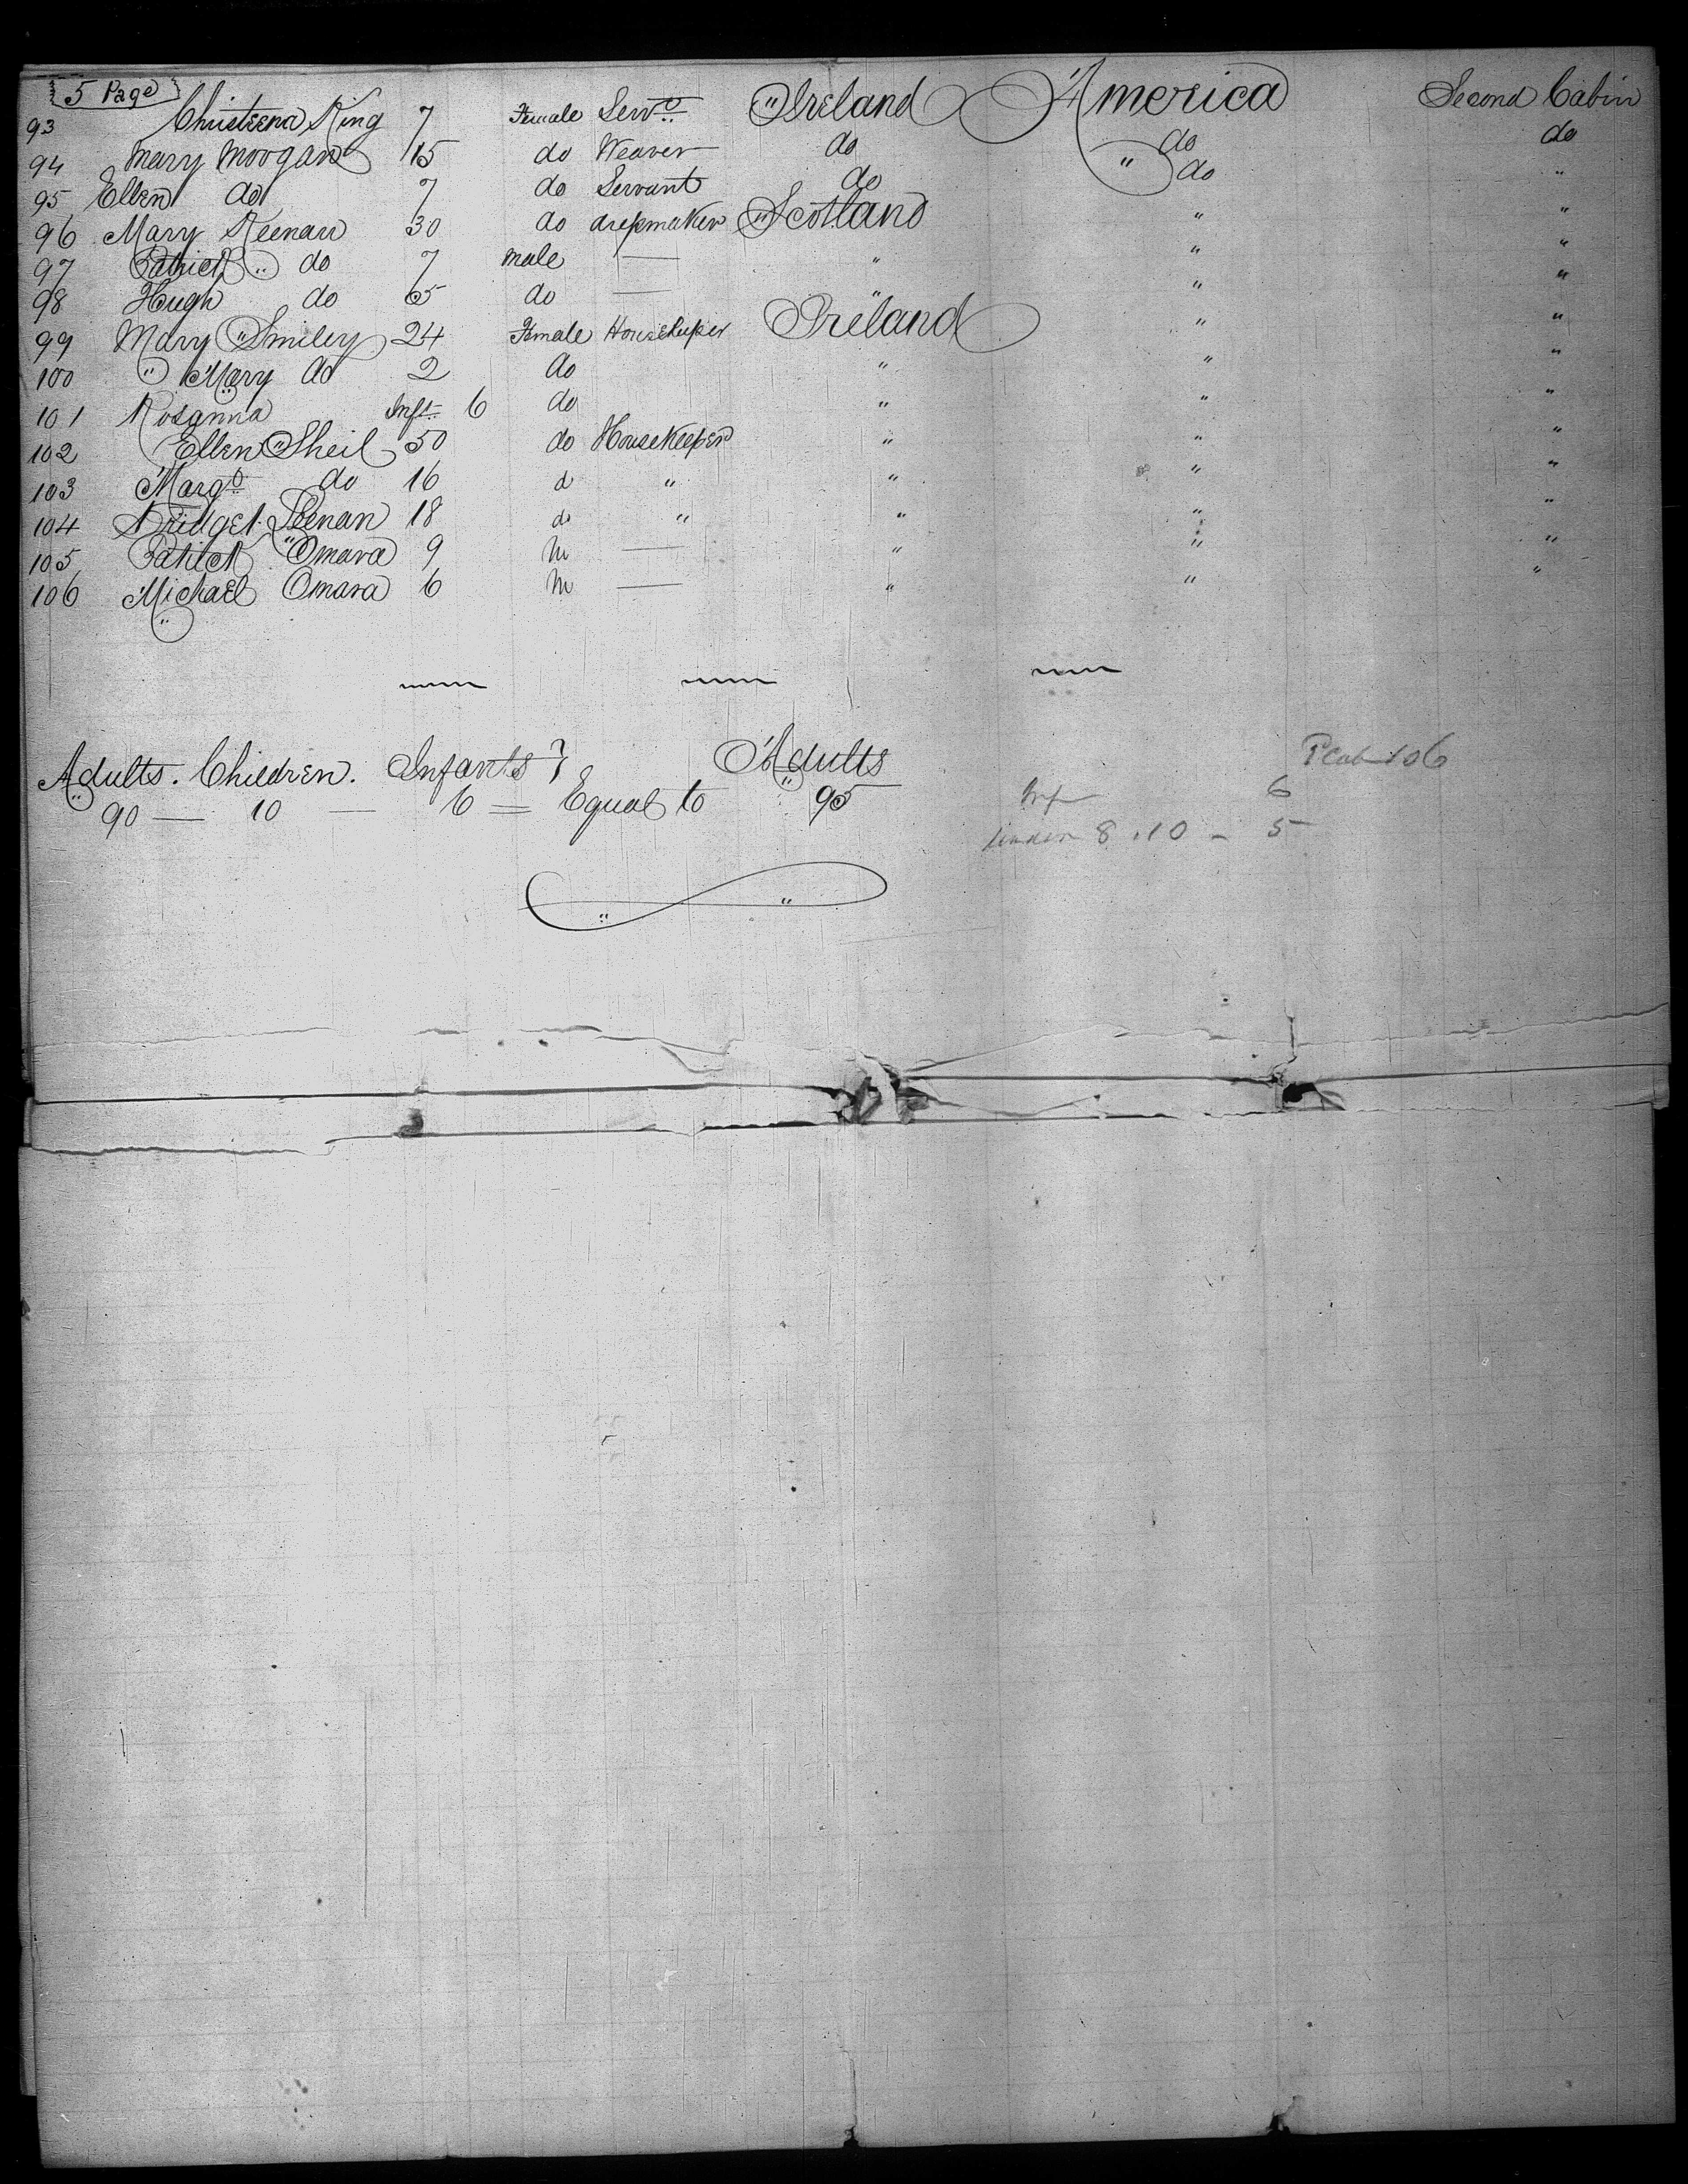 5 Page
93 Christeena King 7 Female Servt "Ireland America Second Cabin
94 Mary Moogan 15 do Weaver do do do
95 Ellen do 7 do Servant do " do "
96 Mary Keenan 30 do dressmaker "Scotland " "
97 Patrick " do 7 male — " " "
98 Hugh do 5 do — " " "
99 Mary Smiley 24 Female Housekeeper Ireland " "
100 " Mary do 2 do " " "
101 Rosanna Inft 6 do " " "
102 Ellen Sheil 50 do Housekeeper " " "
103 Margt do 16 d " " " "
104 Bridget Leenan 18 do " " " "
105 Patick Omara 9 M — " " "
106 Michael Omara 6 M — " " "
Adults. Children. Infants } Adults
90 — 10 — 6 = Equal to 95
106
Inf 6
under 8 . 10 - 5